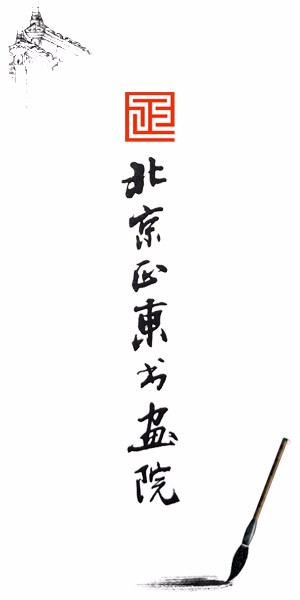 正
北京正東书画院